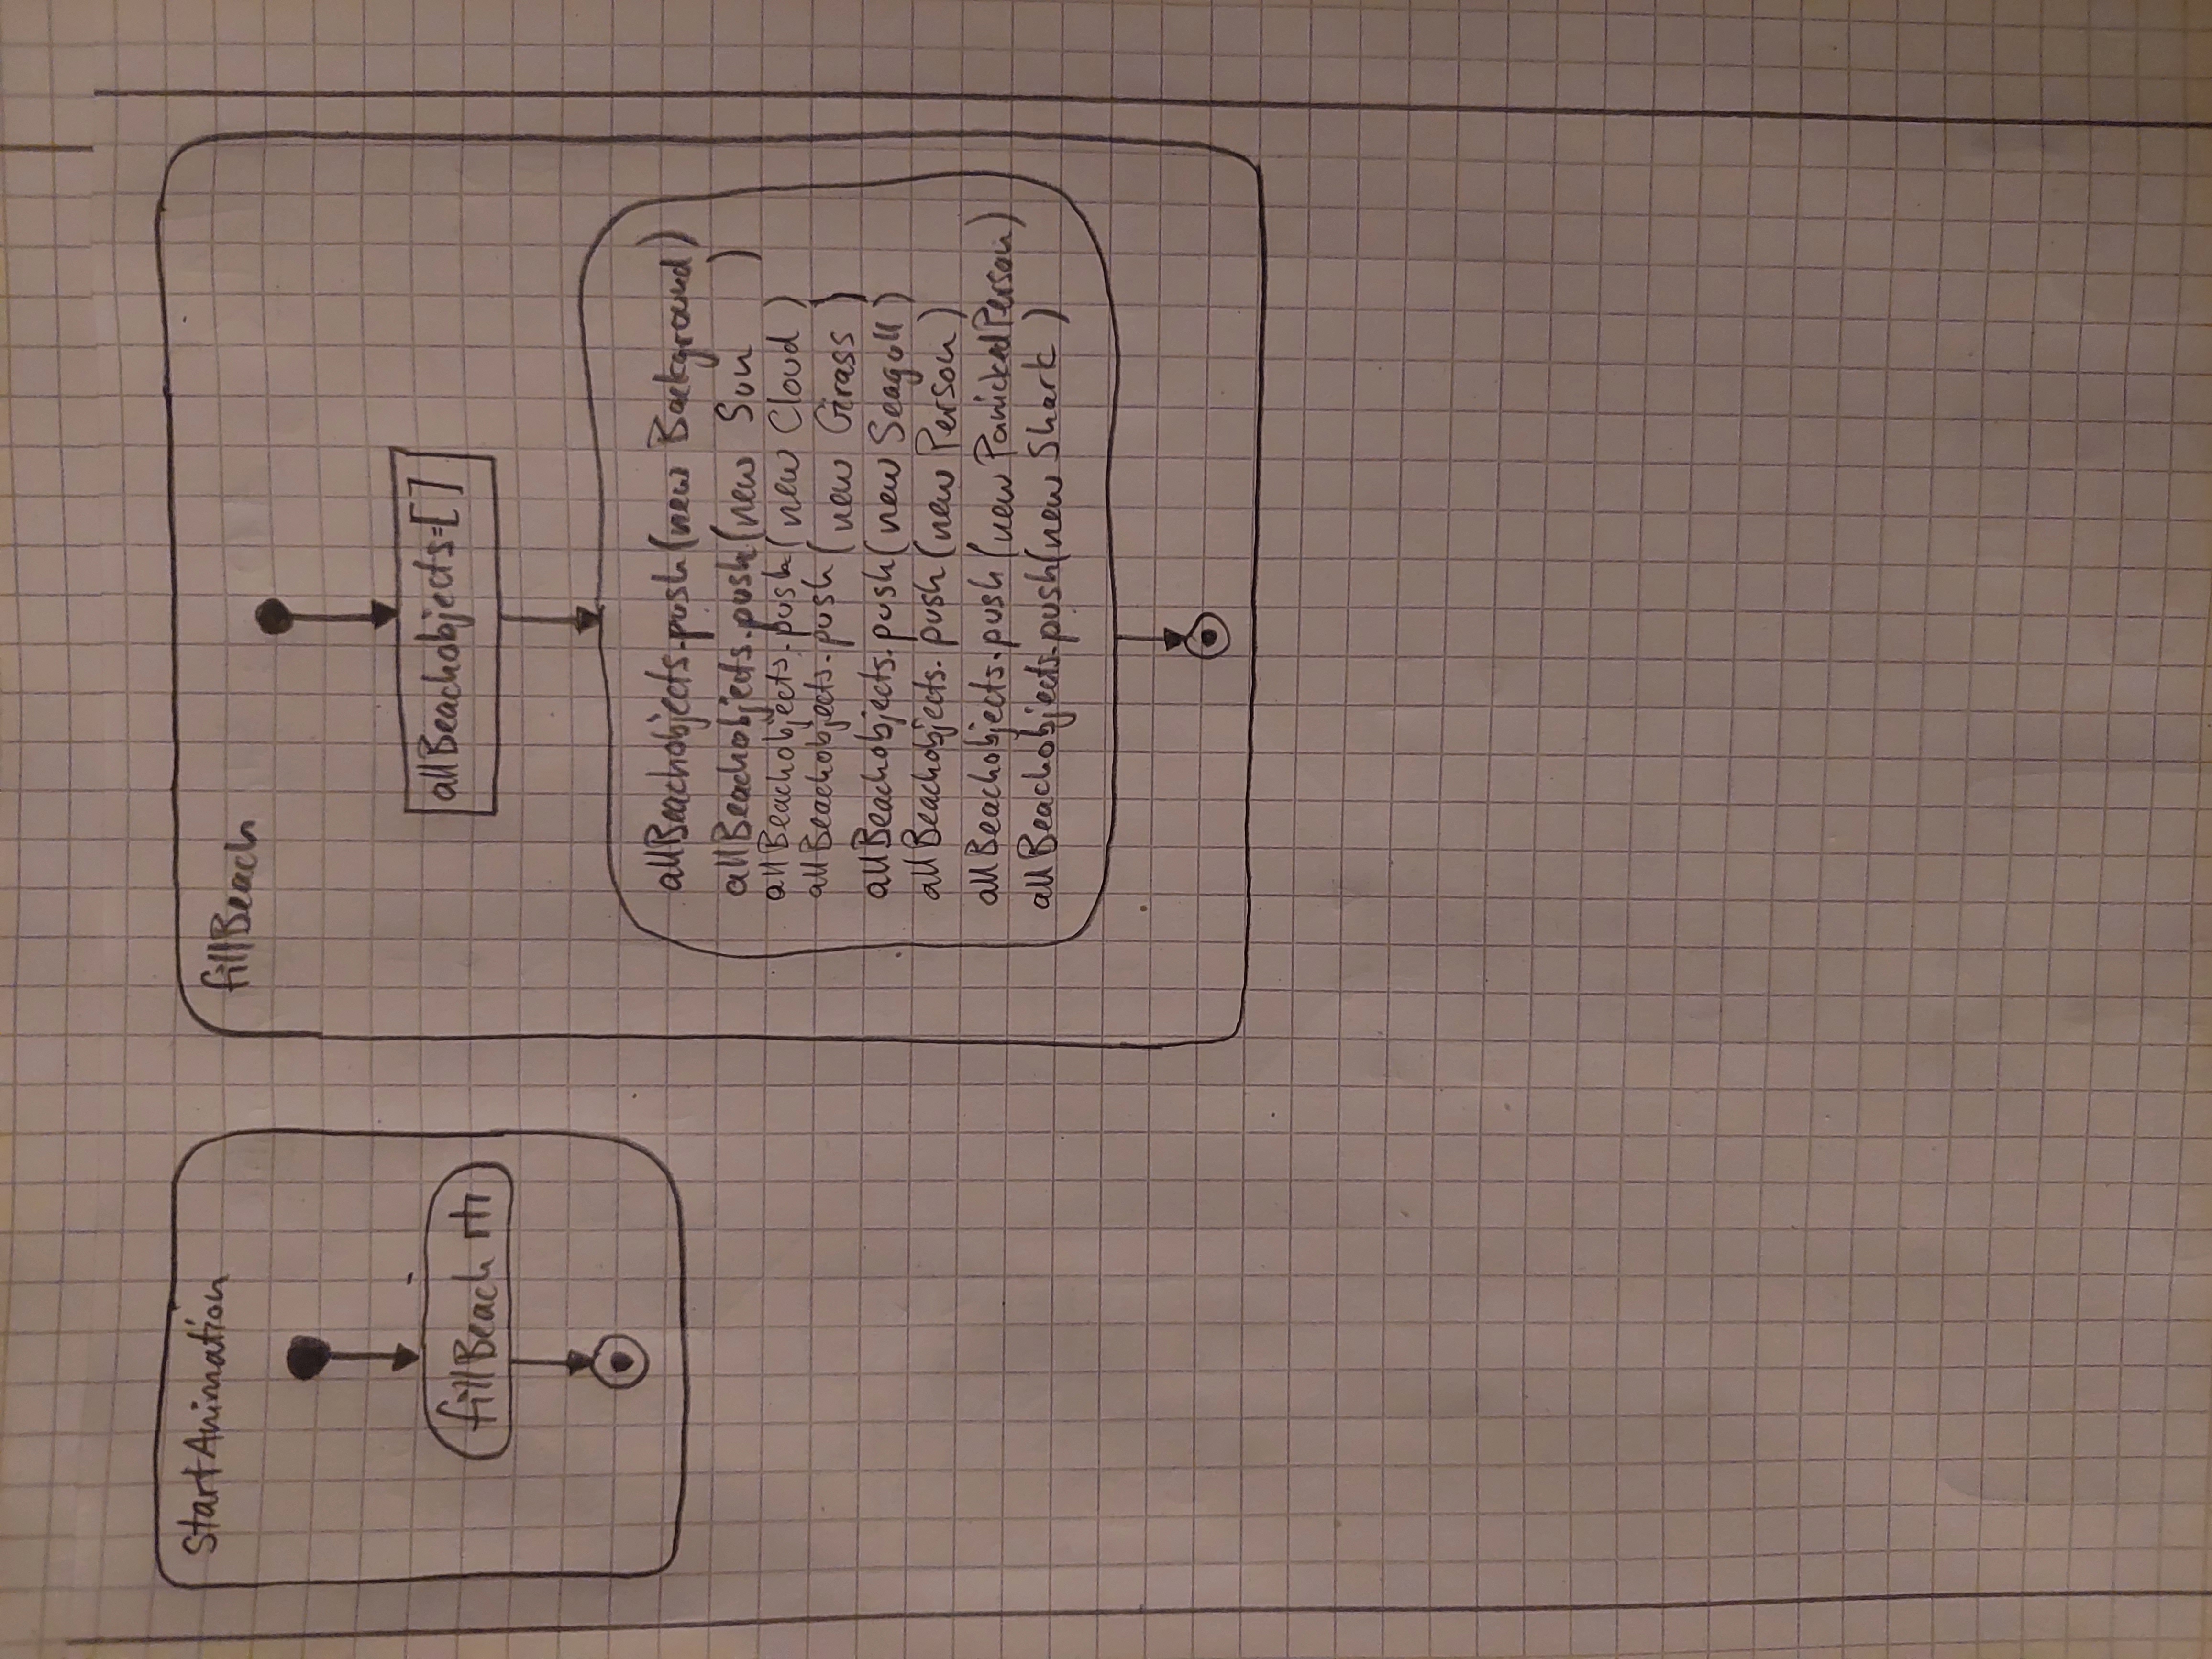 StartAnimation
fillBeach
fillBeach
allBeachobjects=[ ]
allBeachobjects.push(new Background)
allBeachobjects.push(new Sun )
allBeachobjects.push(new Cloud )
allBeachobjects.push(new Grass )
allBeachobjects.push(new Seagull )
allBeachobjects.push(new Person )
allBeachobjects.push(new PanickedPerson)
allBeachobjects.push(new Shark )